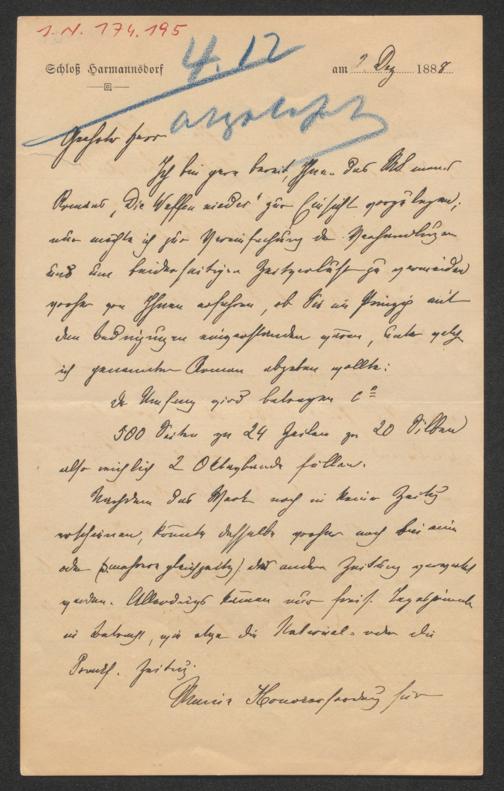 I. N. 174.195
4.12
Schloß Harmannsdorf am 2 Dez 1888
abgelehnt
Geehrter Herr
Ich bin gern bereit, Ihnen das Mst meines
Romans „Die Waffen nieder" zur Einsicht vorzulegen;
nur möchte ich zur Vereinfachung der Verhandlungen
und um beiderseitigen Zeitverlust zu vermeiden
vorher von Ihnen erfahren, ob Sie im Prinzip mit
den Bedingungen einverstanden wären, unter welchen
ich genannten Roman abgeben wollte:
Der Umfang wird betragen ca
500 Seiten zu 24 Zeilen zu 20 Silben
also reichlich 2 Oktavbände füllen.
Nachdem das Werk noch in keiner Zeitung
erschienen, könnte dasselbe vorher noch bei einer
oder (mehrere gleichzeitig) der anderen Zeitung verwertet
werden. Allerdings können nur freis.
in Betracht, wie etwa die National- oder die
Frankf. Zeitung.
Meine Honorarforderung für